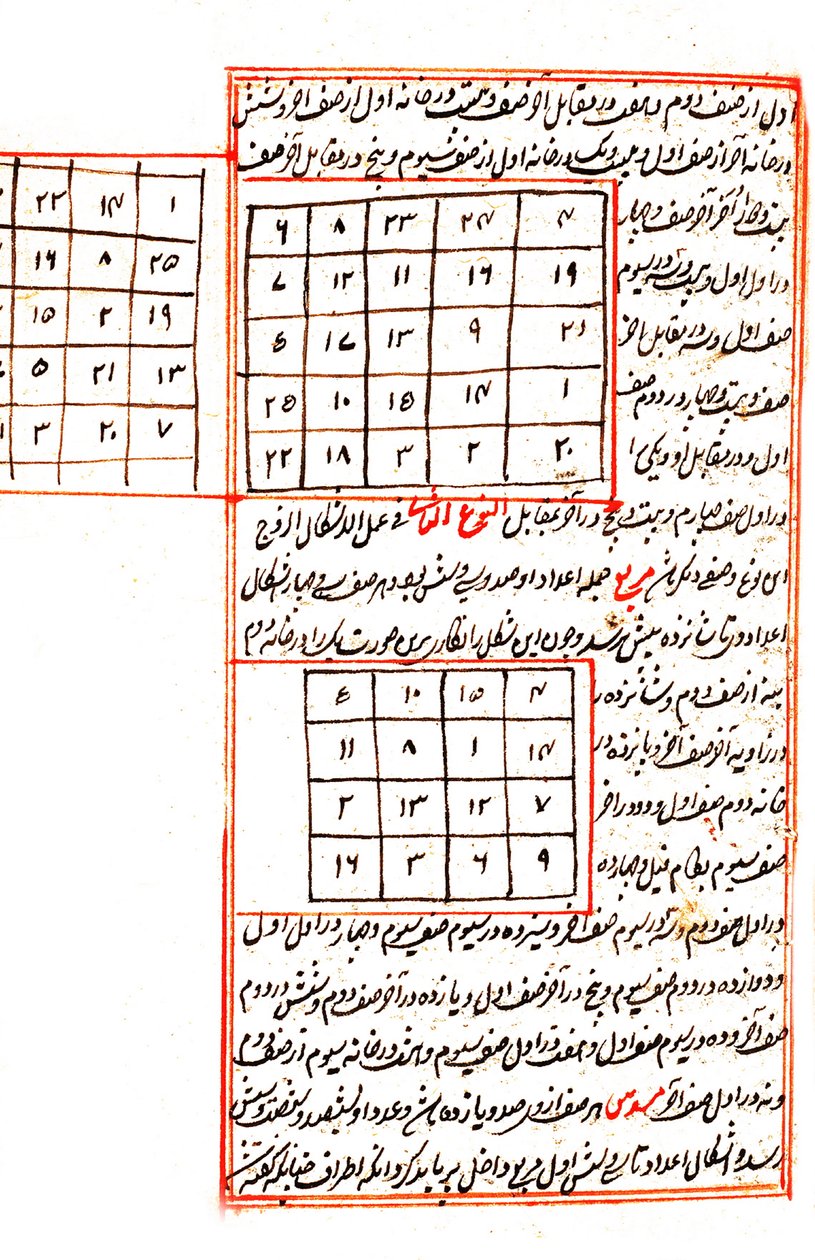 اول از صف دوم و هفت در مقابل آخر صف و بیست در خانه اول از صف آخر و شش
در خانه آخر از صف اول و بیست و یک در خانه اول از صف سیوم و پنج در مقابل آخر صف
۶ ۸ ۲۳ ۲۴ ۴
۷ ۱۲ ۱۱ ۱۶ ۱۹
۵ ۱۷ ۱۳ ۹ ۲۱
۲۵ ۱۰ ۱۵ ۱۴ ۱
۲۲ ۱۸ ۳ ۲ ۲۰
آخر صف و چهار
در اول اول و بیست و سه در سیوم
صف اول و سه در مقابل آخر
صف و بیست و چهار در دوم صف
اول و دو در مقابل او و یکی را
۲۲ ۱۴ ۱
۱۶ ۸ ۲۵
۱۵ ۲ ۱۹
۵ ۲۱ ۱۳
۳ ۲۰ ۷
در اول صف چهارم و بیست و پنج در آخر بمقابل النوع الثانی فی عمل الاشکال الزوج
این نوع مربع جمله اعداد او صد و سی و شش بود هر صف سی و چهار اشکال
اعداد در تا شانزده بیش نرسد و چون این شکل را نگارد برین صورت یک را در خانه دوم
۵ ۱۰ ۱۵ ۴
۱۱ ۸ ۱ ۱۴
۲ ۱۳ ۱۲ ۷
۱۶ ۳ ۶ ۹
از صف دوم و شانزده
در زاویه آخر صف آخر و پانزده در
خانه دوم صف اول و دو در آخر
صف سیوم بکام فیل و چهارده
در اول صف دوم و سه در سیوم صف آخر و سیزده در سیوم صف سیوم و چهار در اول اول
و دوازده در دوم صف سیوم و پنج در آخر صف اول و یازده در آخر صف دوم و شش در دوم
صف آخر و ده در سیوم صف اول و هفت در اول صف سیوم و هشت در خانه سیوم از صف دوم
و نه در اول صف آخر مسدس هر صف ازو صد و یازده باشد و عدد او ششصد و شصت و شش
رسد و اشکال اعداد تا سی و شش اول مربع داخل پر باید کرد آنکه اطراف چنانکه گفته شد